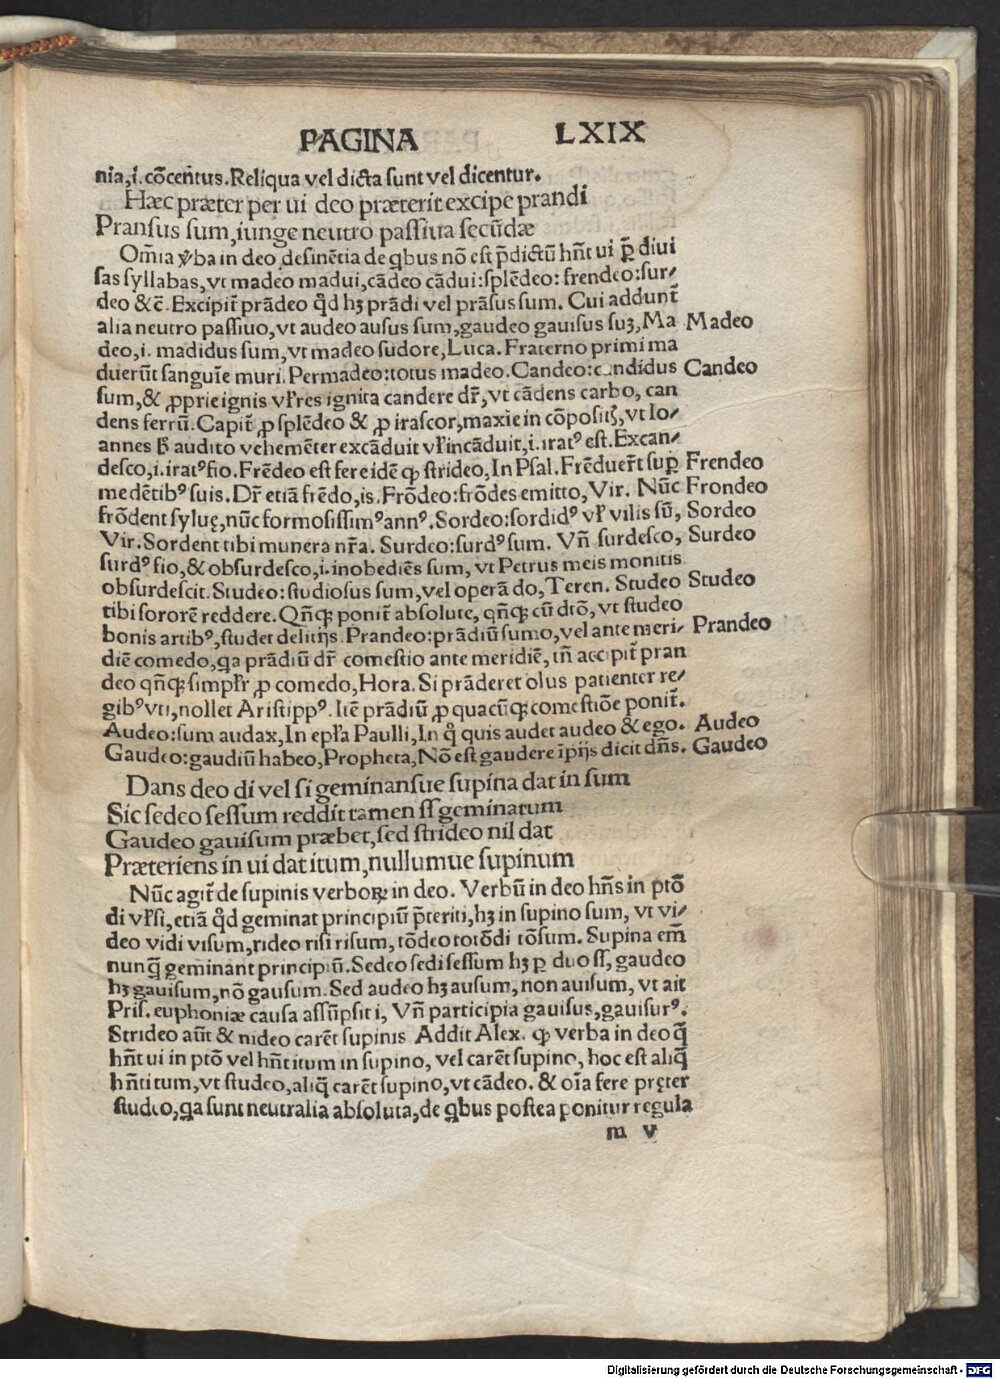 PAGINA LXIX
nia,i. cõcent9us.Reliqua vel dicta sunt vel dicentur.
Hæc præter per ui deo præterit excipe prandi
Pransus sum,iunge neutro passiua secũdæ
Om̃ia v̾ba in deo desinẽtia de qbus nõ est p̄dictũ hñt ui p̱ diui
sas syllabas,vt madeo madui,cãdeo cãdui:splẽdeo: frendeo:sur⸗
deo &c̃. Excipit̃ prãdeo qď hꝫ prãdi vel prãsus sum. Cui addunt̃
alia neutro passiuo,vt audeo ausus sum,gaudeo gauisus suꝫ,Ma Madeo
deo,i. madidus sum,vt madeo sudore,Luca. Fraterno primi ma
duerũt sanguĩe muri. Permadeo:totus madeo. Candeo:candidus Candeo
sum,& ꝓprie ignis vl̾ res ignita candere dr̃, vt cãdens carbo, can
dens ferrũ. Capit̃ ꝓ splẽdeo & ꝓ irascor,maxie in cõpositꝭ,vt Io⸗
annes ħ audito vehemẽter excãduit vl̾ incãduit,i. iratꝰ est. Excan⸗
desco,i. iratꝰ fio. Frẽdeo est fere idẽ qꝫ strideo, In Psal. Frẽduer̃t sup̱ Frendeo
me dẽtibꝰ suis. Dr̃ etiã frẽdo,is. Frõdeo:frõdes emitto, Vir. Nũc Frondeo
frõdent syluę,nũc formosissimꝰ annꝰ. Sordeo:sordidꝰ vl̾ vilis sũ, Sordeo
Vir. Sordent tibi munera nr̃a. Surdeo:surdꝰ sum. Vñ surdesco, Surdeo
surdꝰ fio,& obsurdesco,i. inobediẽs sum, vt Petrus meis monitis
obsurdescit. Studeo: studiosus sum,vel operã do, Teren. Studeo Studeo
tibi sororẽ reddere. Qñqꝫ ponit̃ absolute, qñqꝫ cũ dtõ, vt studeo
bonis artibꝰ,studet delitijs. Prandeo:prãdiũ sumo,vel ante meri⸗ Prandeo
diẽ comedo,qa prãdiũ dr̃ comestio ante meridiẽ, tñ accipit̃ pran
deo qñqꝫ simpl̾r ꝓ comedo,Hora. Si prãderet olus patienter re⸗
gibꝰ vti,nollet Aristippꝰ. Itẽ prãdiũ ꝓ quacũqꝫ comestiõe ponit̃.
Audeo:sum audax,In epl̾a Paulli,In q̊ quis audet audeo & ego. Audeo
Gaudeo:gaudiũ habeo,Propheta, Nõ est gaudere ĩpijs dicit dñs. Gaudeo
Dans deo di vel si geminansue supina dat in sum
Sic sedeo sessum reddit tamen ss geminatum
Gaudeo gauisum præbet,sed strideo nil dat
Præteriens in ui dat itum,nullumue supinum
Nũc agit̃ de supinis verboꝝ in deo. Verbũ in deo hñs in ptõ
di vl̾ si,etiã qď geminat principiũ p̃teriti,hꝫ in supino sum, vt vi⸗
deo vidi visum,rideo risi risum, tõdeo totõdi tõsum. Supina em̃
nunq̃ geminant principiũ. Sedeo sedi sessum hꝫ p̱ duo ss, gaudeo
hꝫ gauisum,nõ gausum. Sed audeo hꝫ ausum, non auisum, vt ait
Pris. euphoniæ causa assũpsit i, Vñ participia gauisus,gauisurꝰ.
Strideo aũt & nideo carẽt supinis Addit Alex. qꝫ verba in deo q̃
hñt ui in ptõ vel hñt itum in supino, vel carẽt supino, hoc est aliq̃
hñt itum,vt studeo,aliq̃ carẽt supino,vt cãdeo. & oĩa fere pręter
studeo,qa sunt neutralia absoluta,de qbus postea ponitur regula
m v
Digitalisierung gefördert durch die Deutsche Forschungsgemeinschaft - DFG